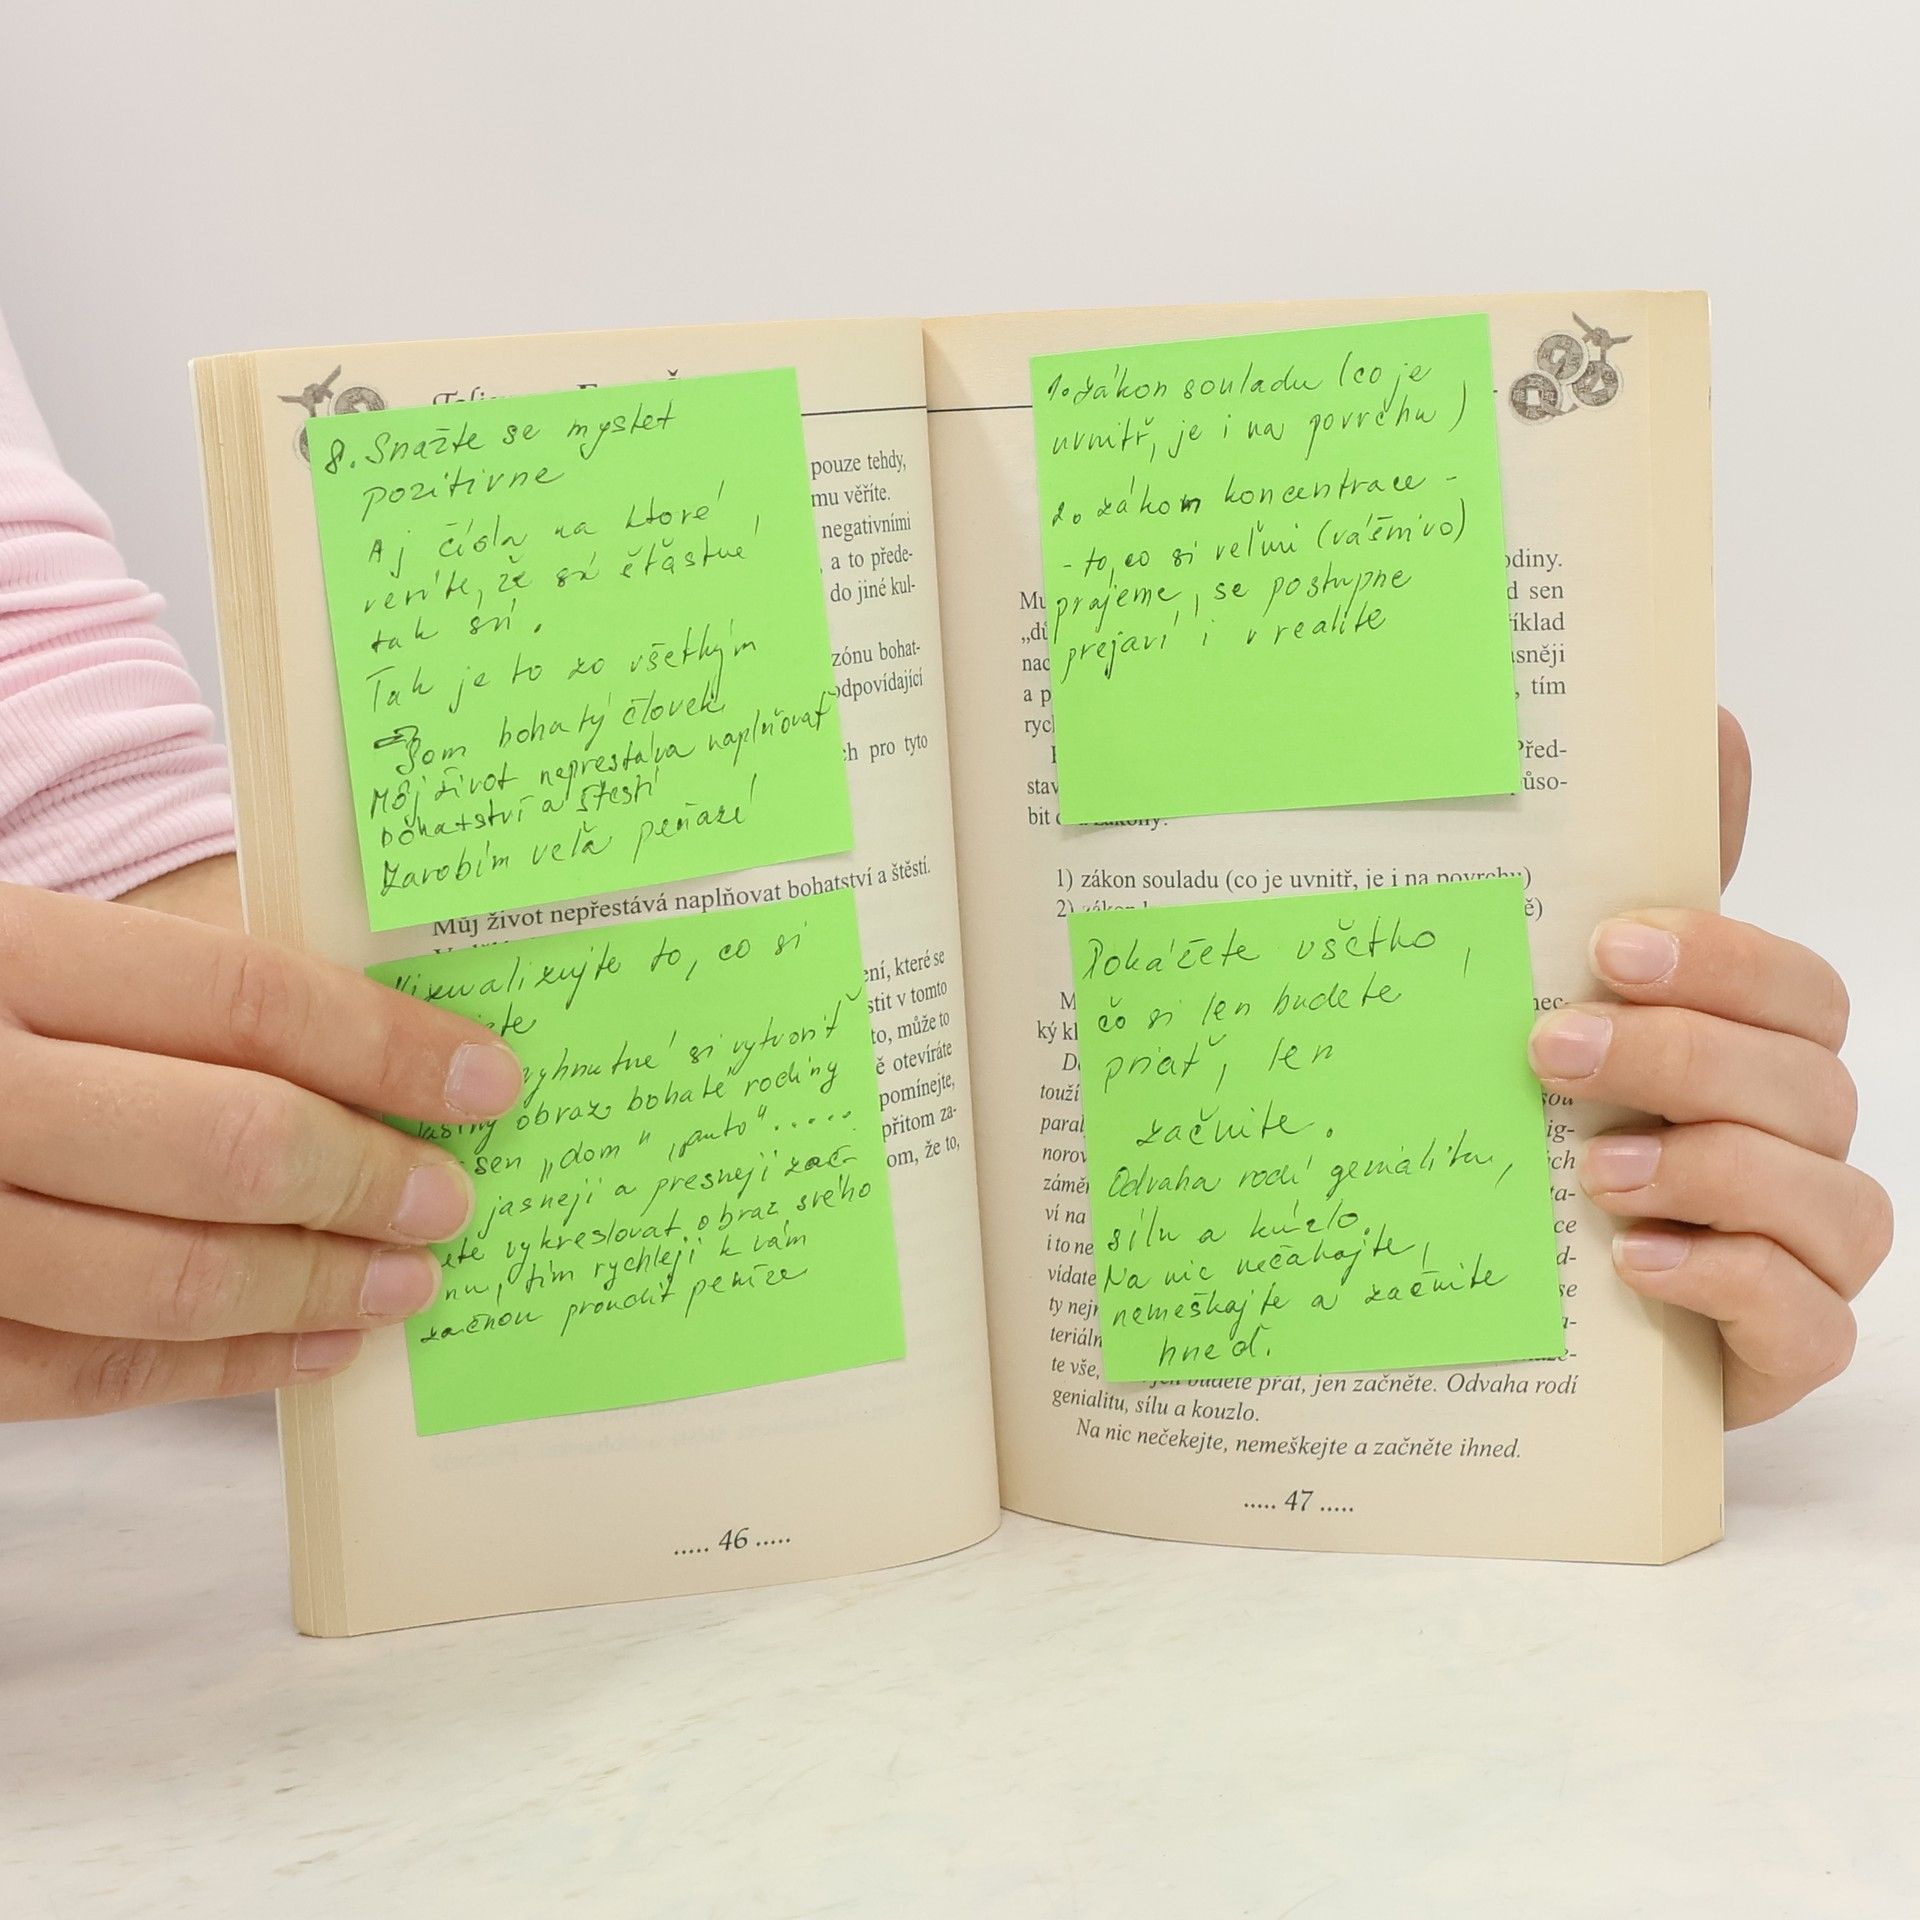 8. Snažte se myslet
pozitivne
Aj čísla na ktoré
veríte, že sú šťastné,
tak sú.
Tak je to zo všetkým
Som bohatý človek
Môj život neprestáva naplňovať
bohatství a štestí
Zarobím veľa peňazí
pouze tehdy,
mu věříte.
negativními
, a to přede-
do jiné kul-
zónu bohat-
odpovídající
ch pro tyto
Můj život nepřestává naplňovat bohatství a štěstí.
Vizualizujte to, co si
obraz bohaté rodiny
sen „dom" „auto".....
jasneji a presneji zač-
ete vykreslovat obraz svého
nu, tím rychleji k vám
začnou proudiť peníze
ení, které se
stit v tomto
to, může to
ě otevíráte
pomínejte,
přitom za-
om, že to,
..... 46 .....
1. zákon souladu (co je
uvnitř, je i na povrchu)
2. zákon koncentrace -
- to, co si veľmi (vášnivo)
prajeme, se postupne
prejaví i v realite
odiny.
d sen
„dů
íklad
nac
asněji
a p
, tím
ryc
Před-
stav
ůso-
bit
zákony:
1) zákon souladu (co je uvnitř, je i na povrchu)
2) zákon
ě)
Dokážete všetko,
čo si len budete
priať, len
začnite.
Odvaha rodí genialitu,
sílu a kúzlo.
Na nic nečakajte,
nemeškajte a začnite
hneď.
nec-
ký kl
touží
sou
paral
ig-
norov
ých
záměr
ta-
ví na
ce
i to ne
d-
vídate
se
ty nejr
a-
teriáln
te vše,
budete přát, jen začněte. Odvaha rodí
genialitu, sílu a kouzlo.
Na nic nečekejte, nemeškejte a začněte ihned.
..... 47 .....